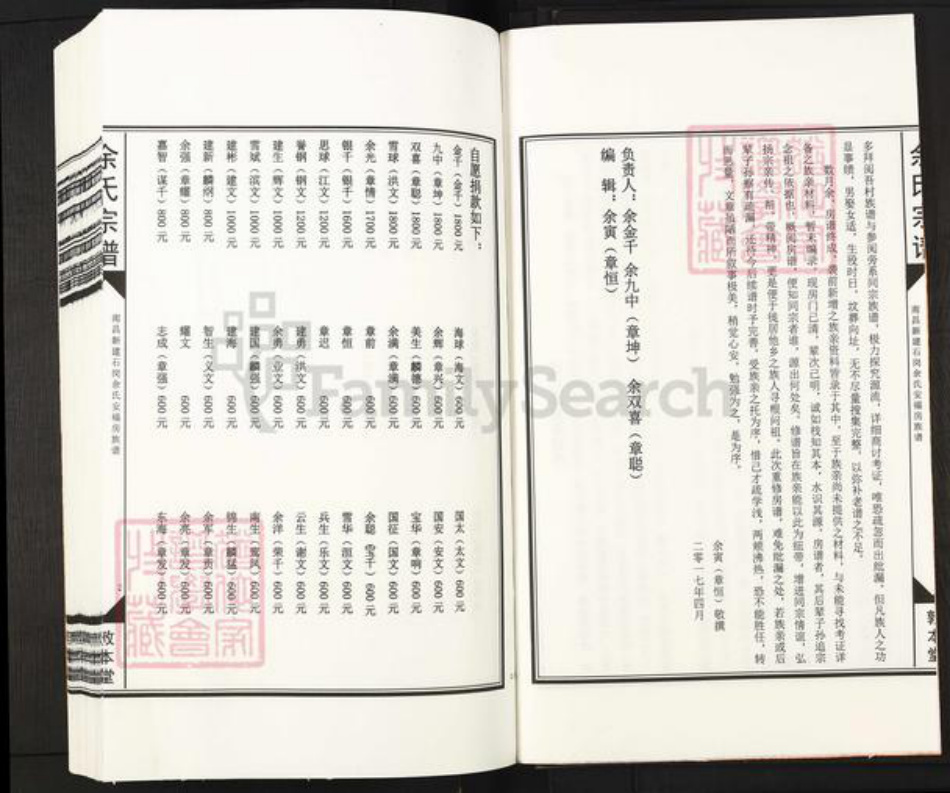 多拜阅吾村族谱与参阅旁系同宗族谱，极力探究源流，详细商讨考证，唯恐疏忽而出纰漏，但凡族人之功
是事绩，男娶女适，生殁时日，坟葬向址，无不尽量搜集完整，以弥补老谱之不足。
数月余，房谱终成，袭前新增之族亲资料皆录于其中，至于族亲尚未提供之材料，与未能寻找考证详
备之族亲材料，暂未编录，现房门已清，辈次已明，诚如枝知其本，水识其源，房谱者，其后辈子孙追宗
念祖之依据也，概阅房谱，便知同宗者谁，源出何处矣，修谱旨在族亲能以此为纽带，增进同宗情谊，弘
扬宗亲传、精、带精神，更是便于徙居他乡之族人寻根问祖，此次重修房谱，难免纰漏之处，若族亲或后
辈子孙察有疏漏，还待今后续谱时予完善，受族亲之托为序，惜己才疏学浅，两颊沸热，恐不能胜任，转
而思量，文章虽陋而所叙事极美，稍觉心安，勉强为之，是为序。
余寅（章恒）敬撰
二零一七年四月
负责人：余金千 余九中（章坤） 余双喜（章聪）
编 辑：余寅（章恒）
余氏宗谱
南昌新建石岗余氏安福房族谱
敦本堂
自愿捐款如下：
金千（金千）1800元 海球（海文）600元 国太（太文）600元
九中（章坤）1800元 余辉（章兴）600元 国安（安文）600元
双喜（章聪）1800元 美生（麟德）600元 宝华（章响）600元
雪球（洪文）1800元 余满（章满）600元 国征（国文）600元
余光（章情）1700元 章前 600元 余聪（雪千）600元
银千（银千）1600元 章恒 600元 雪华（洹文）600元
思球（江文）1200元 章迟 600元 兵生（乐文）600元
誉钢（钢文）1200元 建勇（洪文）600元 云生（谢文）600元
建生（辉文）1000元 余勇（业文）600元 余洋（荣千）600元
雪斌（滨文）1000元 建国（麟强）600元 南生（鸾凤）600元
建彬（建文）1000元 建海 600元 锦生（麟猛）600元
建新（麟纲）800元 智生（义文）600元 余军（章贡）600元
余强（章耀）800元 耀文 600元 余亮（章发）600元
嘉智（谋千）800元 志成（章强）600元 东海（章发）600元
余氏宗谱
南昌新建石岗余氏安福房族谱
敦本堂
FamilySearch